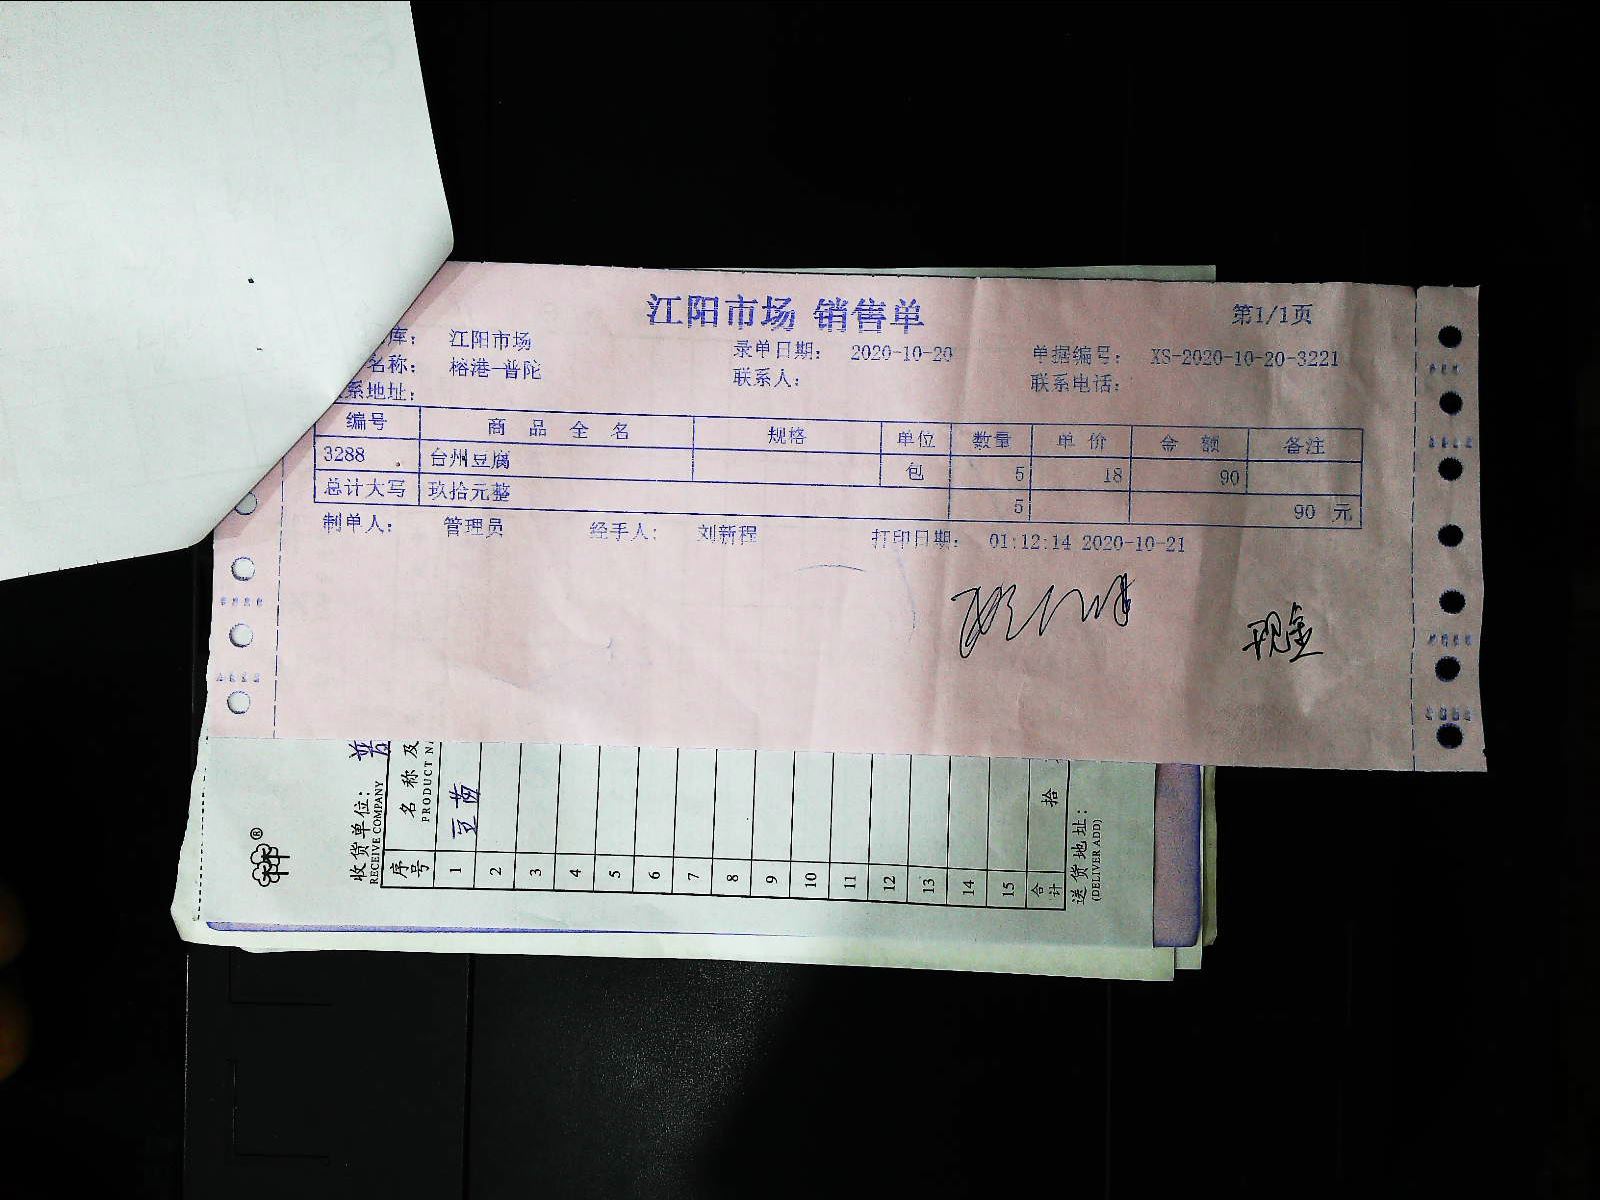 江阳市场 销售单
第1/1页
库： 江阳市场 录单日期： 2020-10-20 单据编号： XS-2020-10-20-3221
名称： 榕港-普陀 联系人： 联系电话：
系地址：
编号 商 品 全 名 规格 单位 数量 单 价 金 额 备注
3288 台州豆腐 包 5 18 90
总计大写 玖拾元整 5 90 元
制单人： 管理员 经手人： 刘新程 打印日期： 01:12:14 2020-10-21
现金
收货单位： 普
RECEIVE COMPANY
序号 名 称 及
PRODUCT NA
1 豆苗
2
3
4
5
6
7
8
9
10
11
12
13
14
15
合计 拾
送货地址：
(DELIVER ADD)